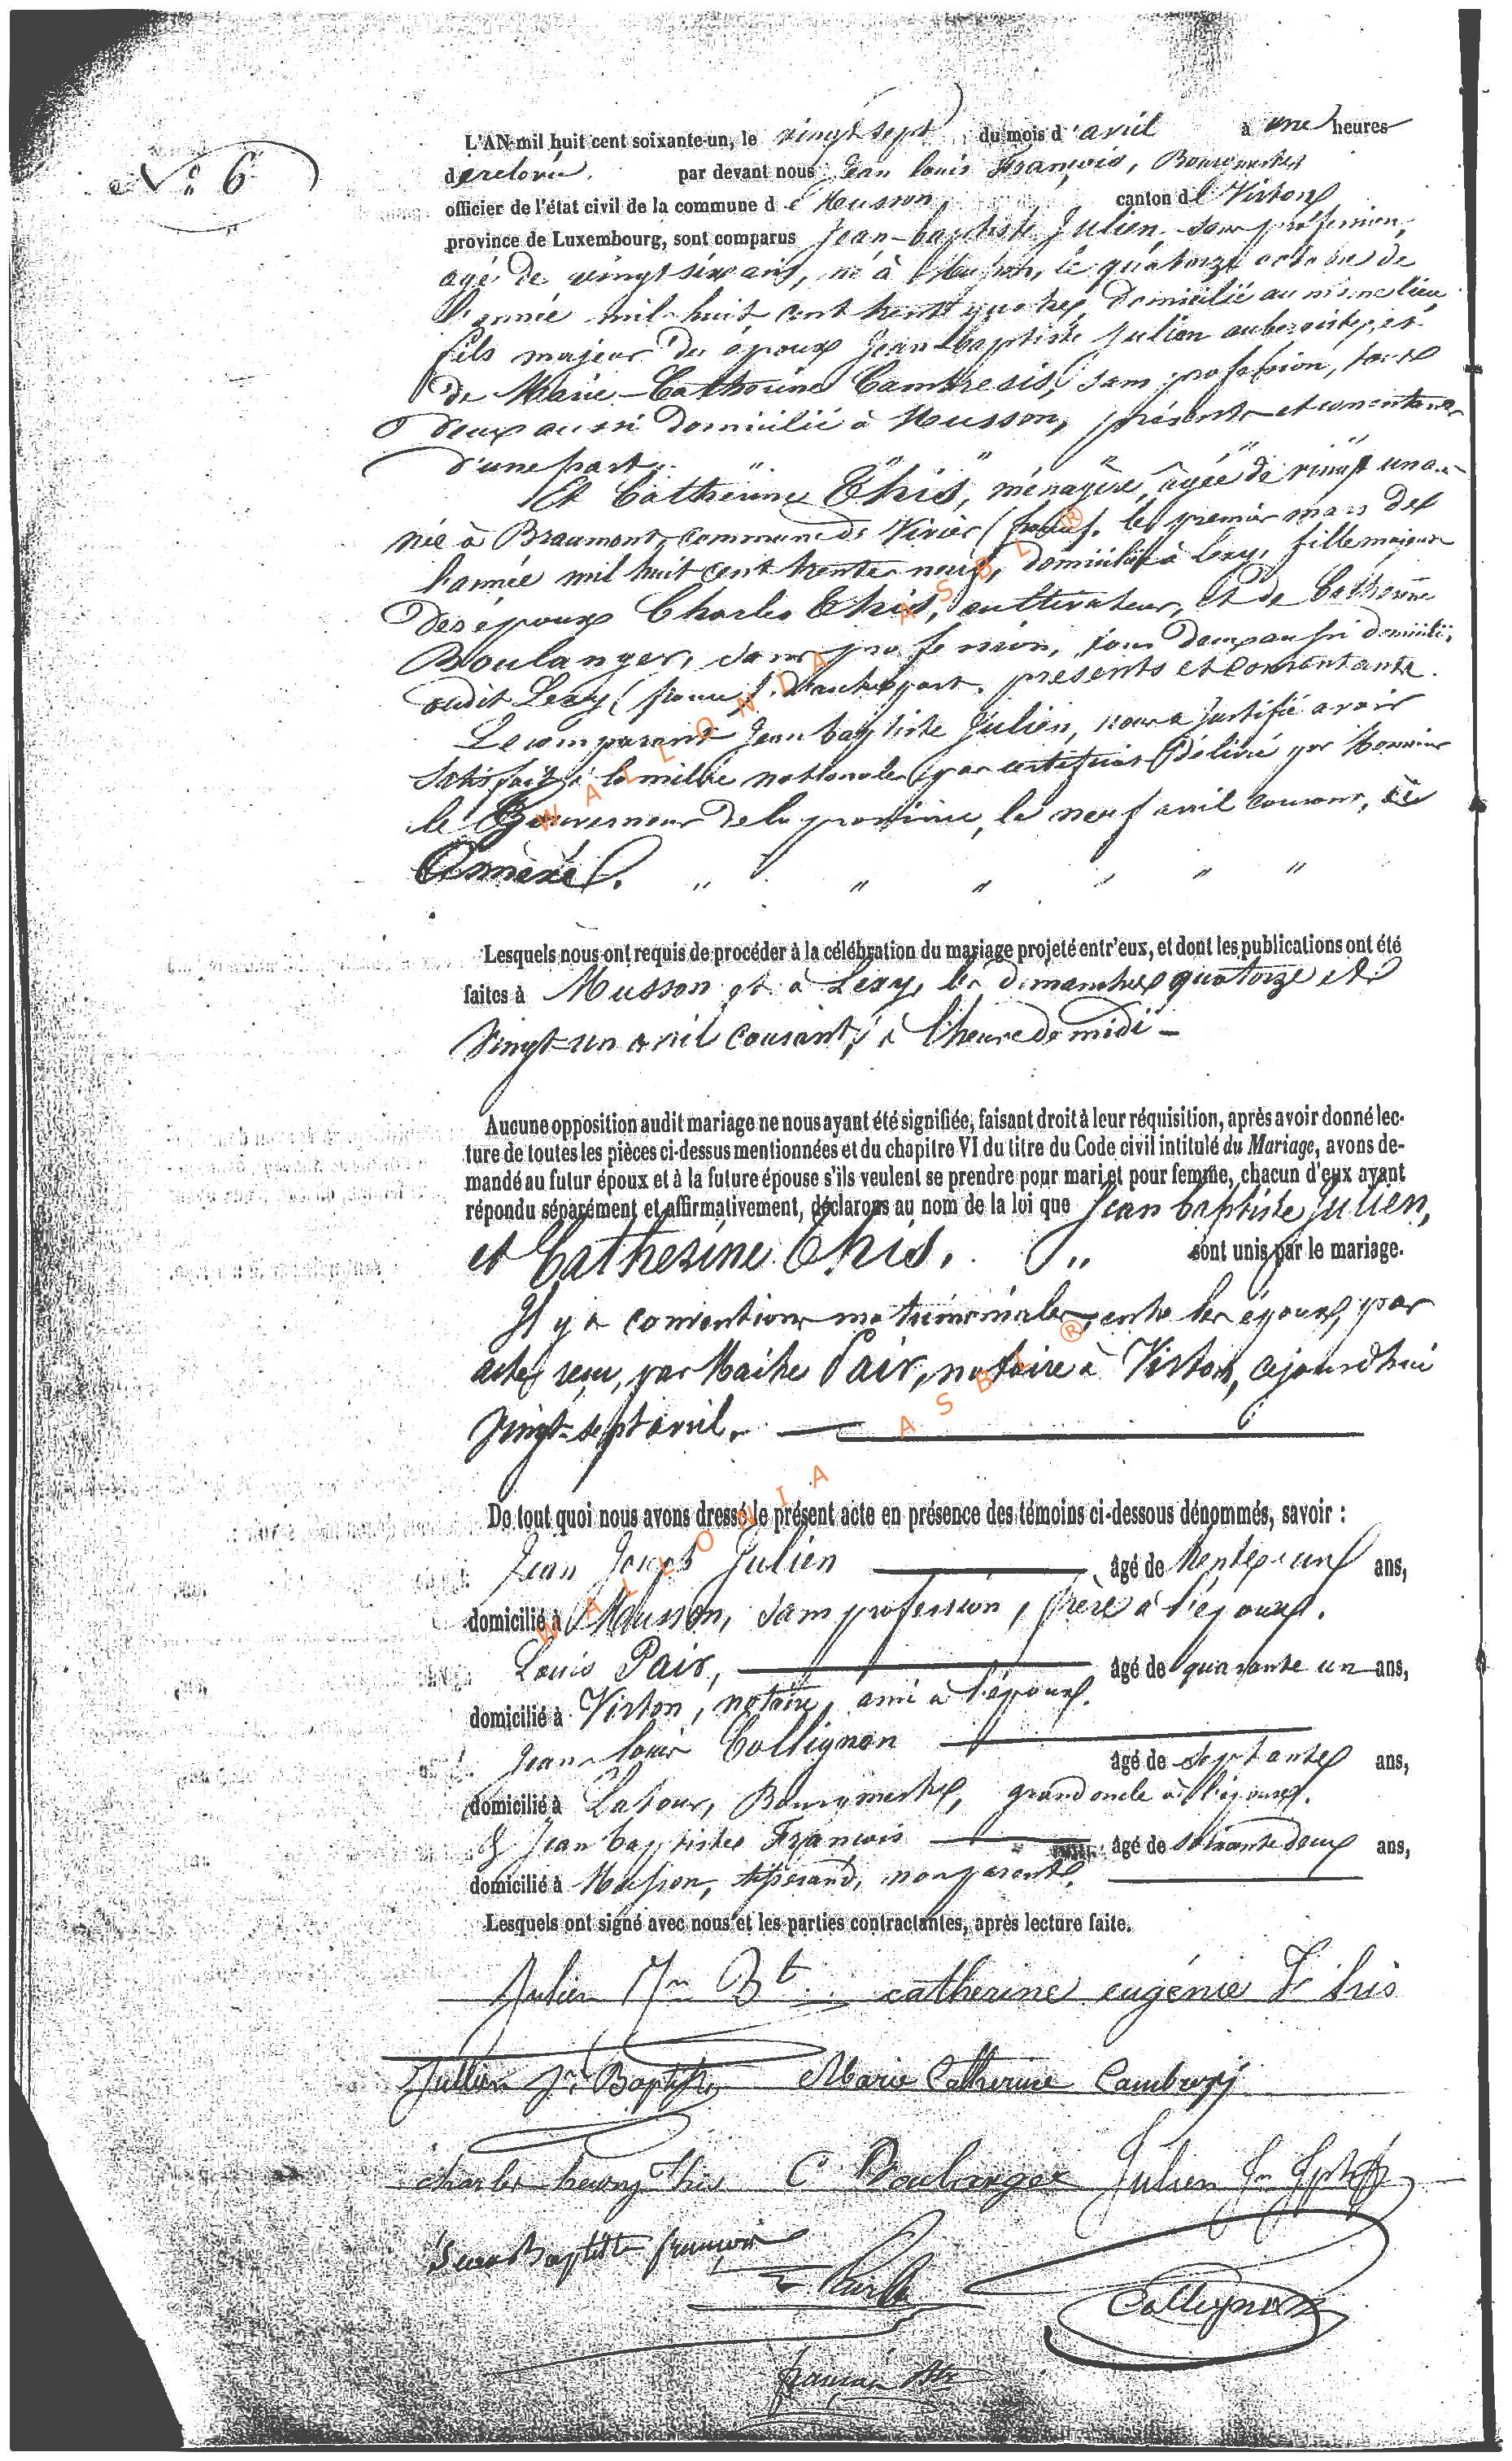 N° 6
L'AN mil huit cent soixante-un, le vingt sept du mois d'avril à une heures
de relevée. par devant nous Jean Louis François, Bourgmestre
officier de l'état civil de la commune de Musson, canton de Virton
province de Luxembourg, sont comparus Jean-baptiste Julien, sans profession,
agé de vingt six ans, né à Musson, le quatorze octobre de
l'année mil huit cent trente quatre, domicilié au même lieu
fils majeur des époux Jean-baptiste Julien aubergiste, et
de Marie-Catherine Cambresis, sans profession, tous
deux aussi domicilié à Musson, présents et consentants
d'une part.
Et Catherine This, ménagère, âgée de vingt un ans
née à Braumont, commune de Vivier (france). le premier mars de
l'année mil huit cent trente neuf, domiciliée à Lexy, fille majeure
des époux Charles This, cultivateur, et de Catherine
Boulanger, sans profession, tous deux aussi domicilié
audit Lexy (france). d'autre part. présents et consentants.
Le comparant Jean baptiste Julien, nous a justifié avoir
satisfait à la milice nationale par certificat délivré par Monsieur
le Gouverneur de la province, le neuf avril courant, ci
Annexé.
Lesquels nous ont requis de procéder à la célébration du mariage projeté entr'eux, et dont les publications ont été
faites à Musson et à Lexy, les dimanches quatorze et
vingt-un avril courant, à l'heure de midi -
Aucune opposition audit mariage ne nous ayant été signifiée, faisant droit à leur réquisition, après avoir donné lec-
ture de toutes les pièces ci-dessus mentionnées et du chapitre VI du titre du Code civil intitulé du Mariage, avons de-
mandé au futur époux et à la future épouse s'ils veulent se prendre pour mari et pour femme, chacun d'eux ayant
répondu séparément et affirmativement, déclarons au nom de la loi que Jean baptiste Julien,
et Catherine This. sont unis par le mariage.
Il y a conventions matrimoniales, entre les époux, par
acte reçu, par Maître Pair, notaire à Virton, cejourd'hui
vingt-sept avril.
De tout quoi nous avons dressé le présent acte en présence des témoins ci-dessous dénommés, savoir :
Jean Joseph Julien âgé de trente-un ans,
domicilié à Musson, sans profession, frère à l'époux.
Louis Pair, âgé de quarante un ans,
domicilié à Virton, notaire, ami à l'époux.
Jean-Louis Collignon âgé de septante ans,
domicilié à Latour, Bourgmestre, grand oncle à l'époux.
& Jean baptiste François âgé de soixante deux ans,
domicilié à Musson, non parent.
Lesquels ont signé avec nous et les parties contractantes, après lecture faite.
Julien Jn Bt catherine eugénie This
Jullien Jn Baptiste Marie Catherine Cambresy
charles henry This C Boulanger Julien Jn Jph
Jean Baptiste françois
L Pair
Collignon
françois
WALLONIA ASBL ®
WALLONIA ASBL ®